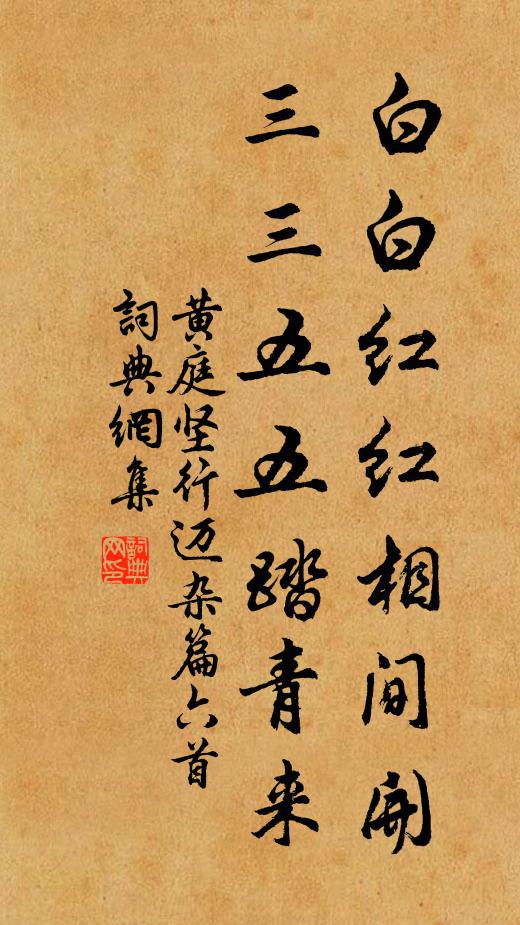 白白红红相间开
三三五五踏青来
黄庭坚行迈杂篇六首
詞典網集
詞典
网印